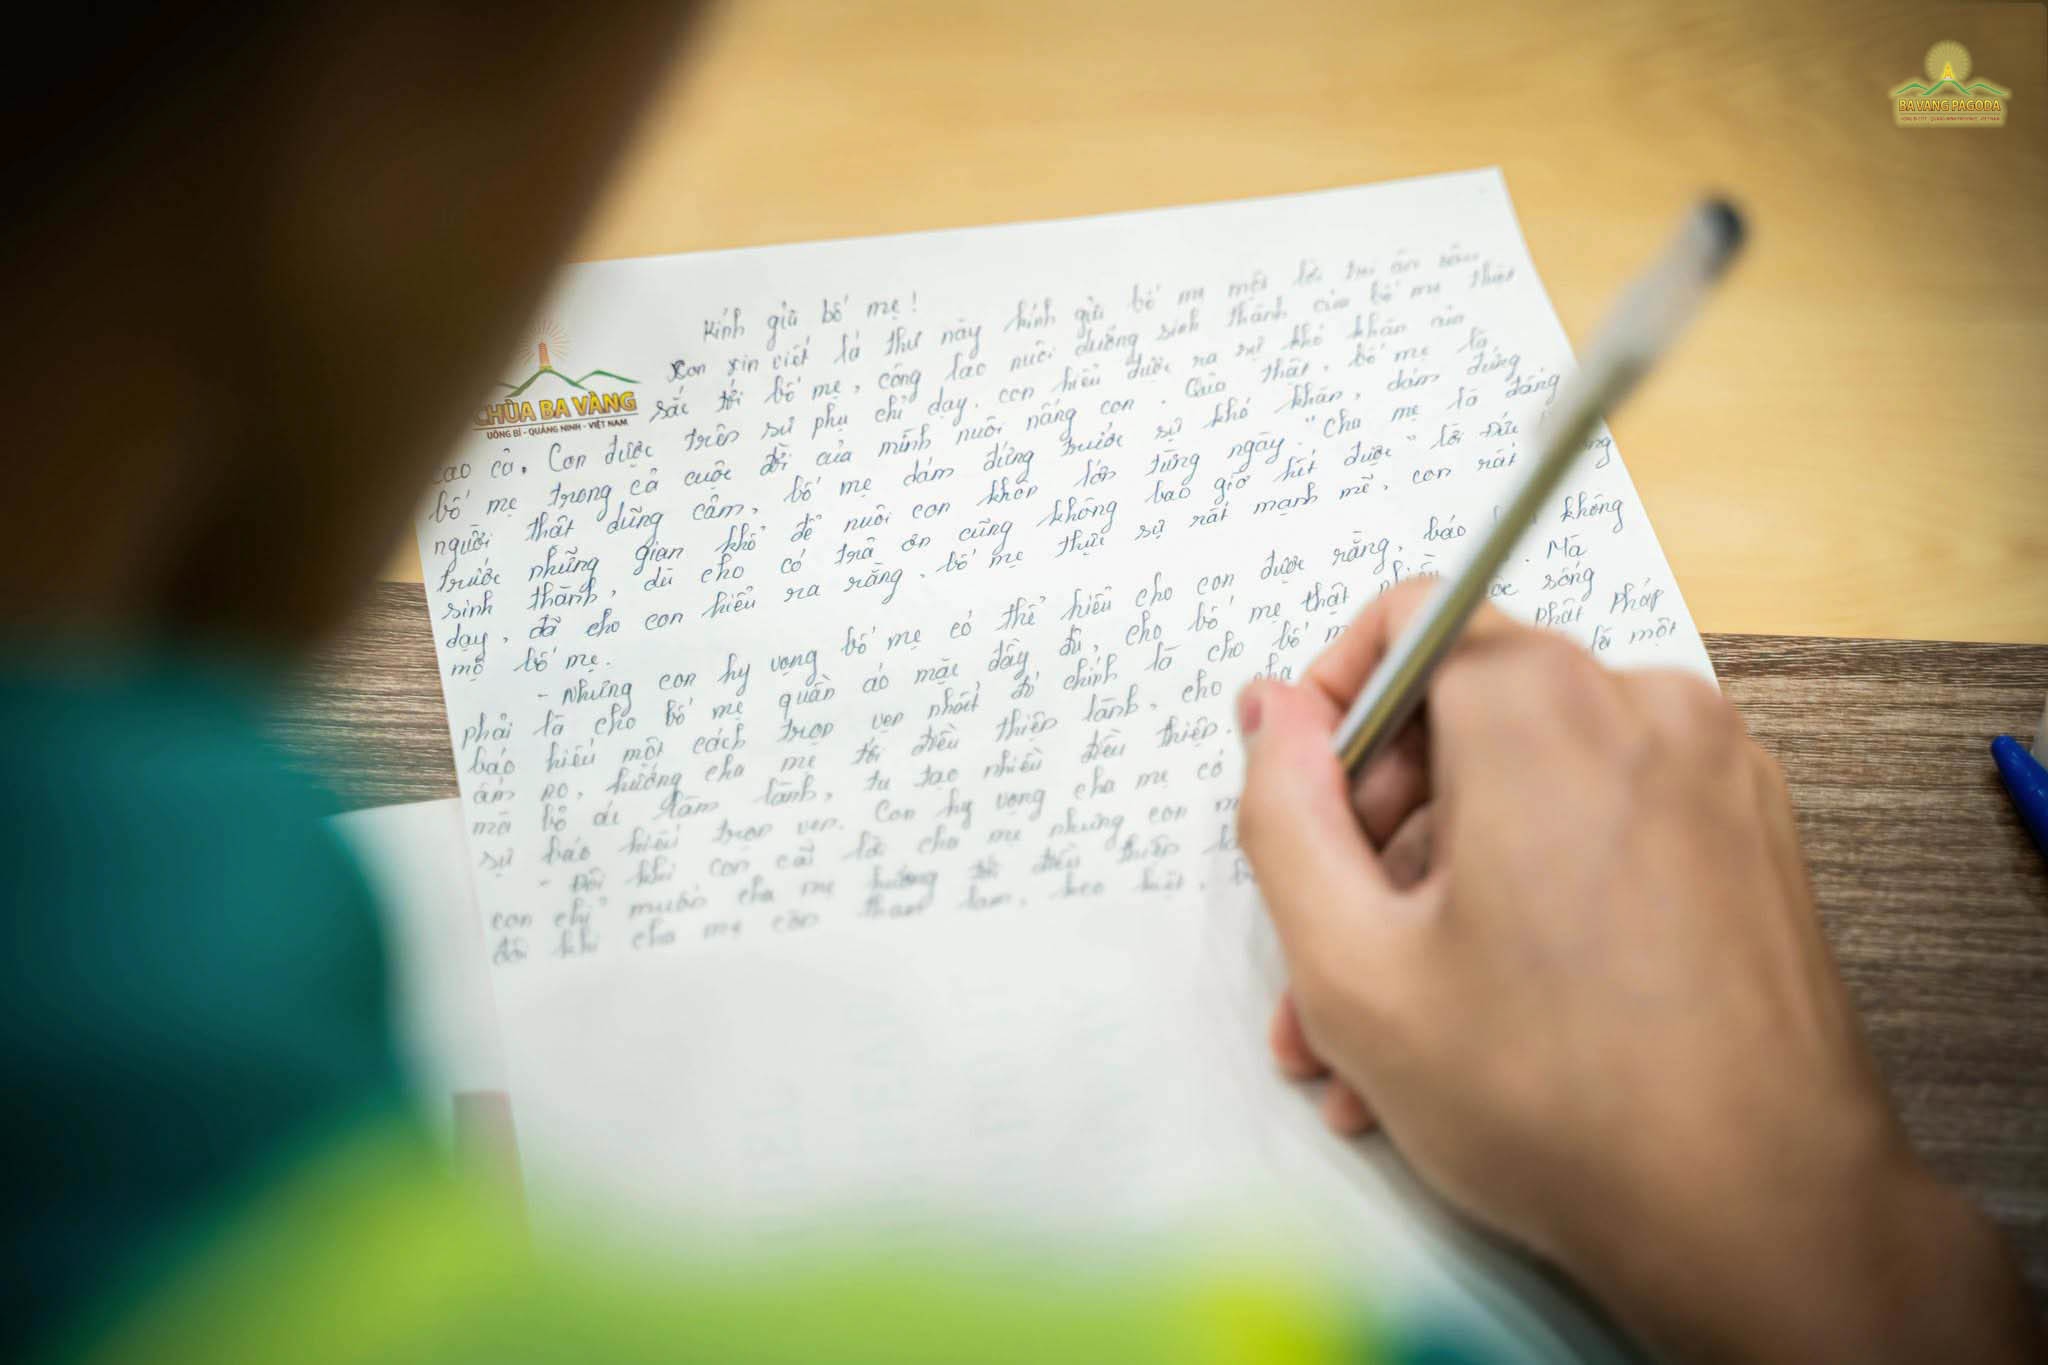 BAVANG PAGODA
CHÙA BA VÀNG
UÔNG BÍ - QUẢNG NINH - VIỆT NAM
Kính gửi bố mẹ!
Con xin viết lá thư này kính gửi bố mẹ một lời tri ân sâu
sắc tới bố mẹ, công lao nuôi dưỡng sinh thành của bố mẹ thật
cao cả. Con được trên sư phụ chỉ dạy. con hiểu được ra sự khó khăn của
bố mẹ trong cả cuộc đời của mình nuôi nấng con. Quả thật, bố mẹ là
người thật dũng cảm, bố mẹ dám đứng trước sự khó khăn, dám đứng
trước những gian khổ để nuôi con khôn lớn từng ngày. "Cha mẹ là đấng
sinh thành, dù cho có trả ơn cũng không bao giờ hết được" lời Đức
dạy, đã cho con hiểu ra rằng, bố mẹ thực sự rất mạnh mẽ, con rất
mộ bố mẹ.
- Nhưng con hy vọng bố mẹ có thể hiểu cho con được rằng, báo không
phải là cho bố mẹ quần áo mặc đầy đủ, cho bố mẹ thật nhiều. Mà
báo hiếu một cách trọn vẹn nhất đó chính là cho bố sống
ấm no, hướng cha mẹ tới điều thiện lành, cho cha Phật Pháp
mà bỏ ác làm lành, tu tạo nhiều điều thiện. là một
sự báo hiếu trọn vẹn. Con hy vọng cha mẹ có
- Đôi khi con cãi lời cha mẹ nhưng con
con chỉ muốn cha mẹ hướng tới điều thiện
đôi khi cha mẹ còn tham lam, keo kiệt,